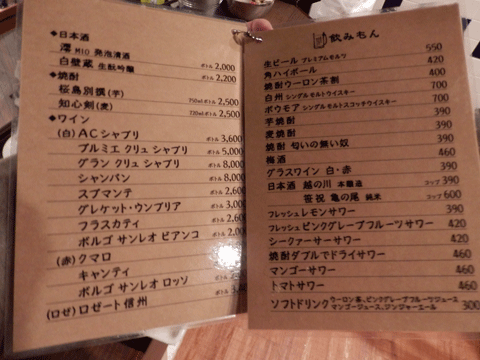 ◆日本酒
澪 MIO 発泡清酒
白壁蔵 生酛吟醸 ボトル 2,000
ボトル 2,200
◆焼酎
桜島別撰(芋)
知心剣(麦) 750mlボトル 2,500
720mlボトル 2,500
◆ワイン
(白) ACシャブリ ボトル 3,600
プルミエ クリュ シャブリ ボトル 5,000
グラン クリュ シャブリ ボトル 8,000
シャンパン ボトル 8,000
スプマンテ ボトル 2,60
グレケット・ウンブリア ボトル 3,00
フラスカティ ボトル 2,60
ボルゴ サンレオ ビアンコ ボトル 2,00
(赤) クマロ
キャンティ
ボルゴ サンレオ ロッソ
(ロゼ) ロゼート信州
飲みもん
生ビール プレミアムモルツ 550
角ハイボール 420
焼酎ウーロン茶割 400
白州 シングルモルトウイスキー 700
ボウモア シングルモルトスコッチウイスキー 700
芋焼酎 390
麦焼酎 390
焼酎 匂いの無い奴 390
梅酒 460
グラスワイン 白・赤 390
日本酒 越の川 本醸造 コップ 390
笹祝 亀の尾 純米 コップ 600
フレッシュレモンサワー 390
フレッシュピンクグレープフルーツサワー 420
シークァーサーサワー 420
焼酎ダブルでドライサワー 460
マンゴーサワー 460
トマトサワー 460
ソフトドリンク ウーロン茶、ピンクグレープフルーツジュース マンゴージュース、ジンジャーエール 300